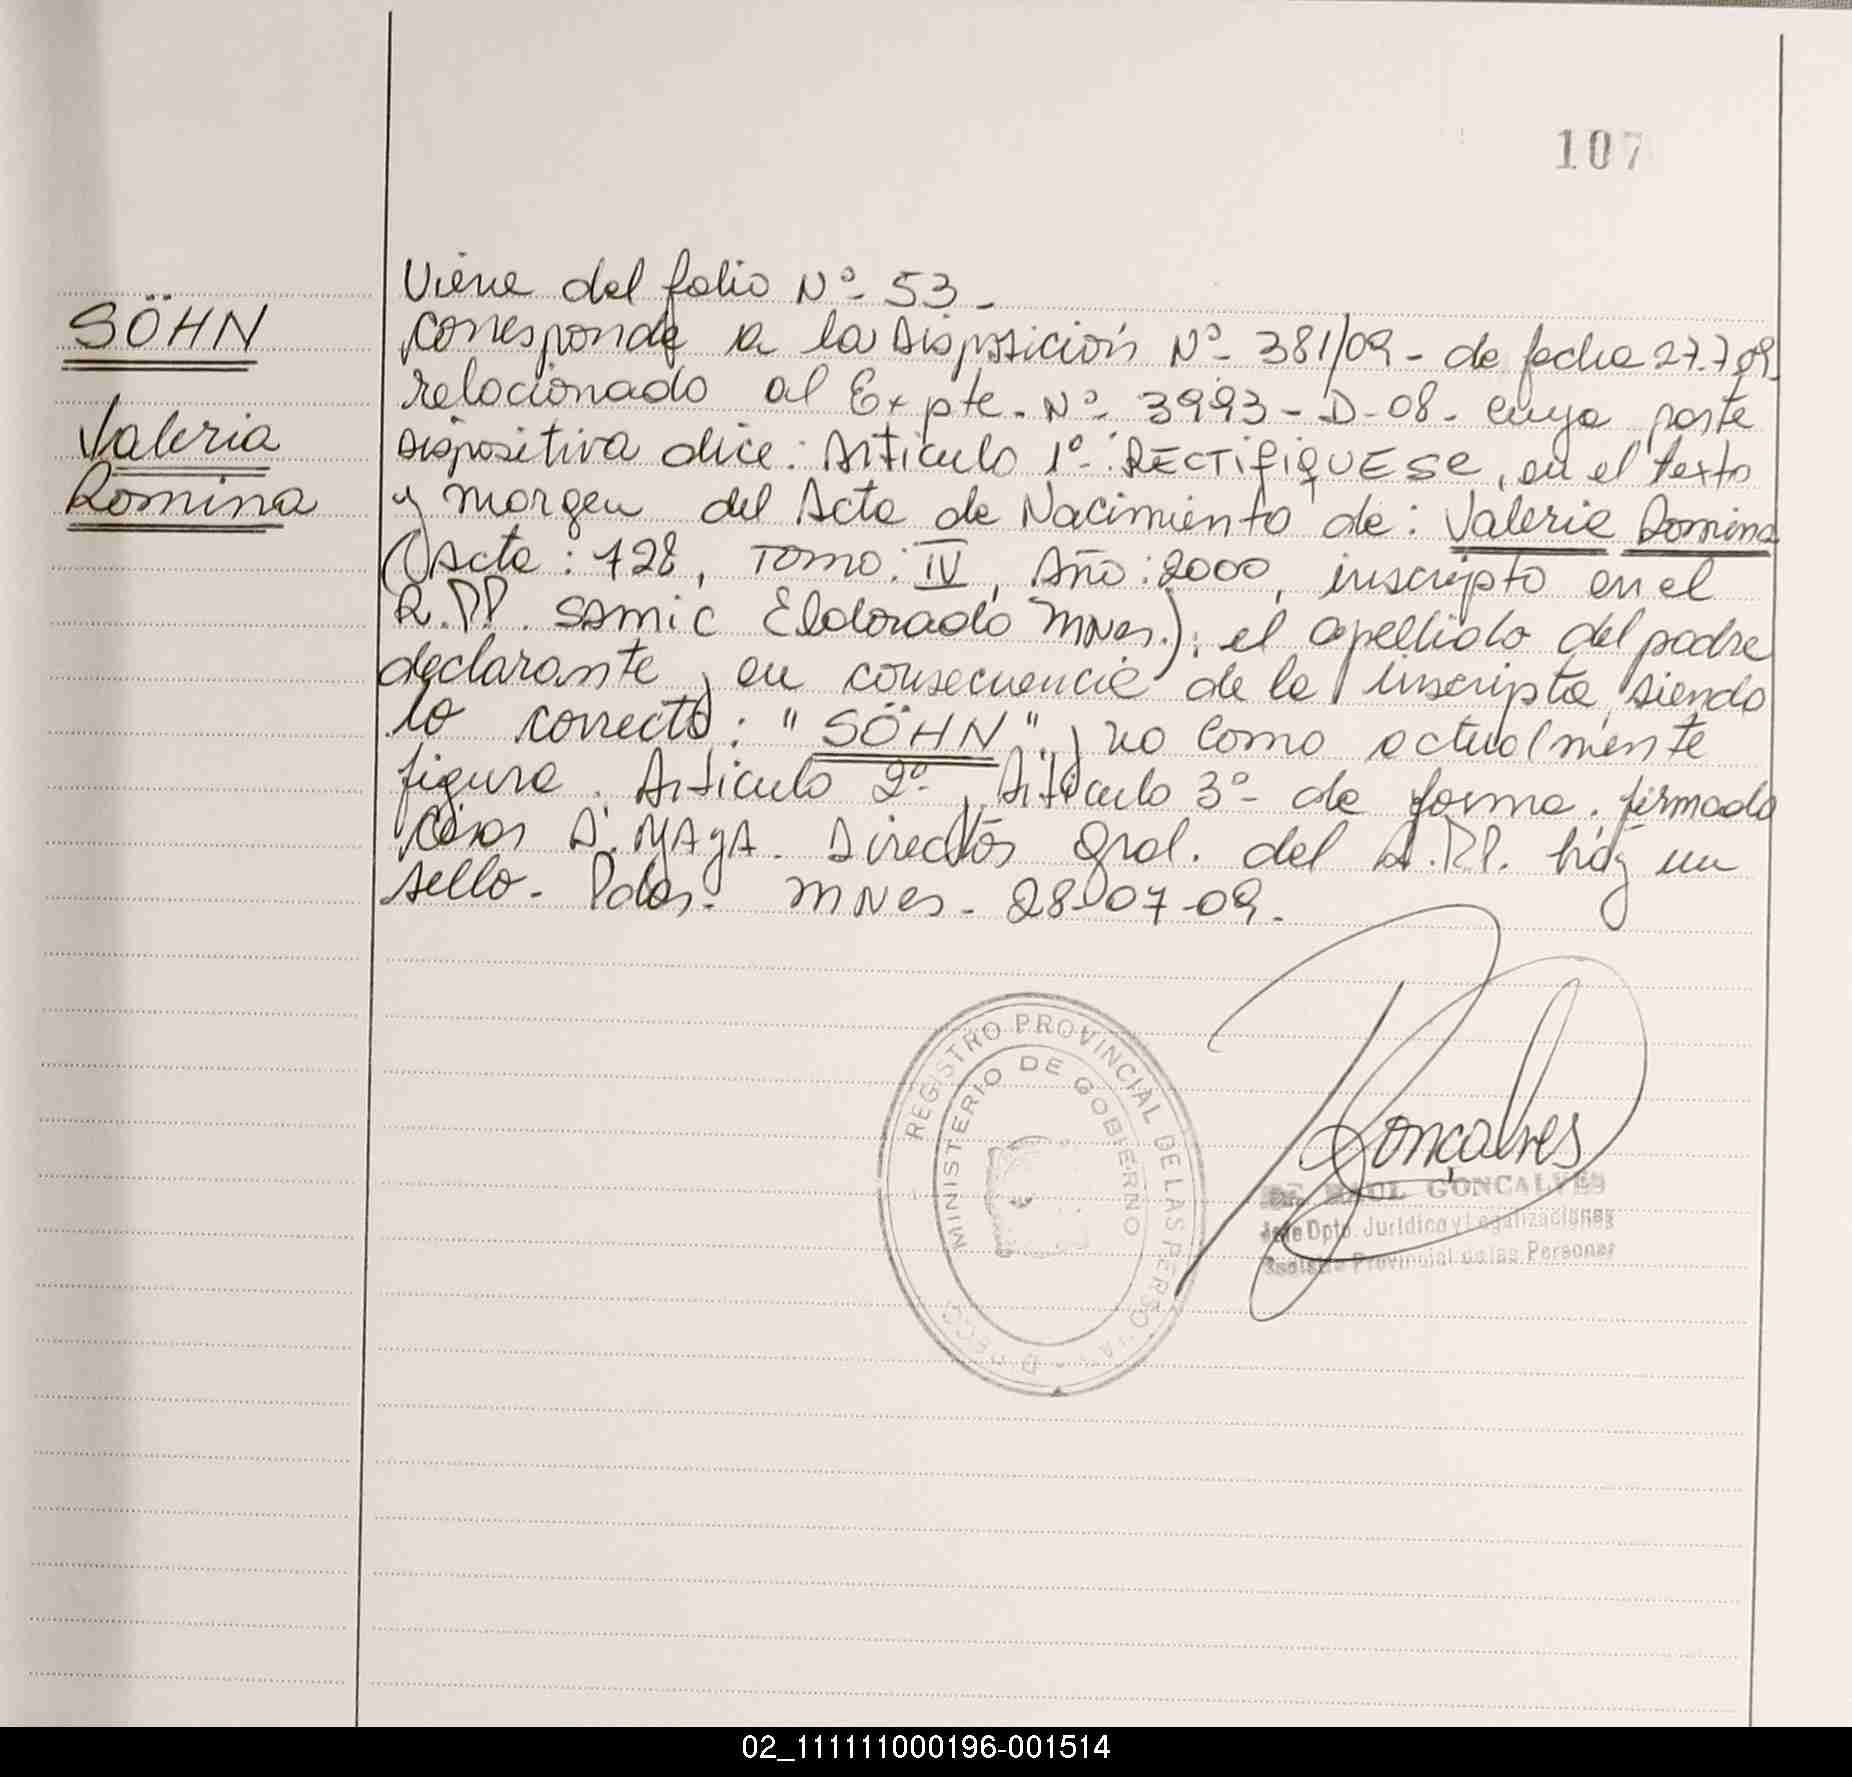 107
SÖHN
Valeria
Romina
Viene del folio Nº 53-
Corresponde a la Disposición Nº 381/09 - de fecha 27.7.09.
relacionado al Expte. Nº 3993-D-08- cuya parte
dispositiva dice: Articulo 1º: RECTIFIQUESE, en el texto
y margen del Acta de Nacimiento de: Valeria Romina
(Acta: 728, Tomo: IV, Año: 2000, inscripto en el
R.P.P. SAMIC Eldorado Mnes.): el apellido del padre
declarante y en consecuencia de la inscripta, siendo
lo correcto: "SÖHN" y no como actualmente
figura. Articulo 2º y Articulo 3º de forma. firmado
D. MAGA. Director Gral. del R.P.P. hay un
sello. Pdas. Mnes. 28-07-09.
REGISTRO PROVINCIAL DE LAS PERSONAS
MINISTERIO DE GOBIERNO
Gonçalves
RAUL GONCALVES
Jefe Dpto. Jurídico y Legalizaciones
Registro Provincial de las Personas
02_111111000196-001514